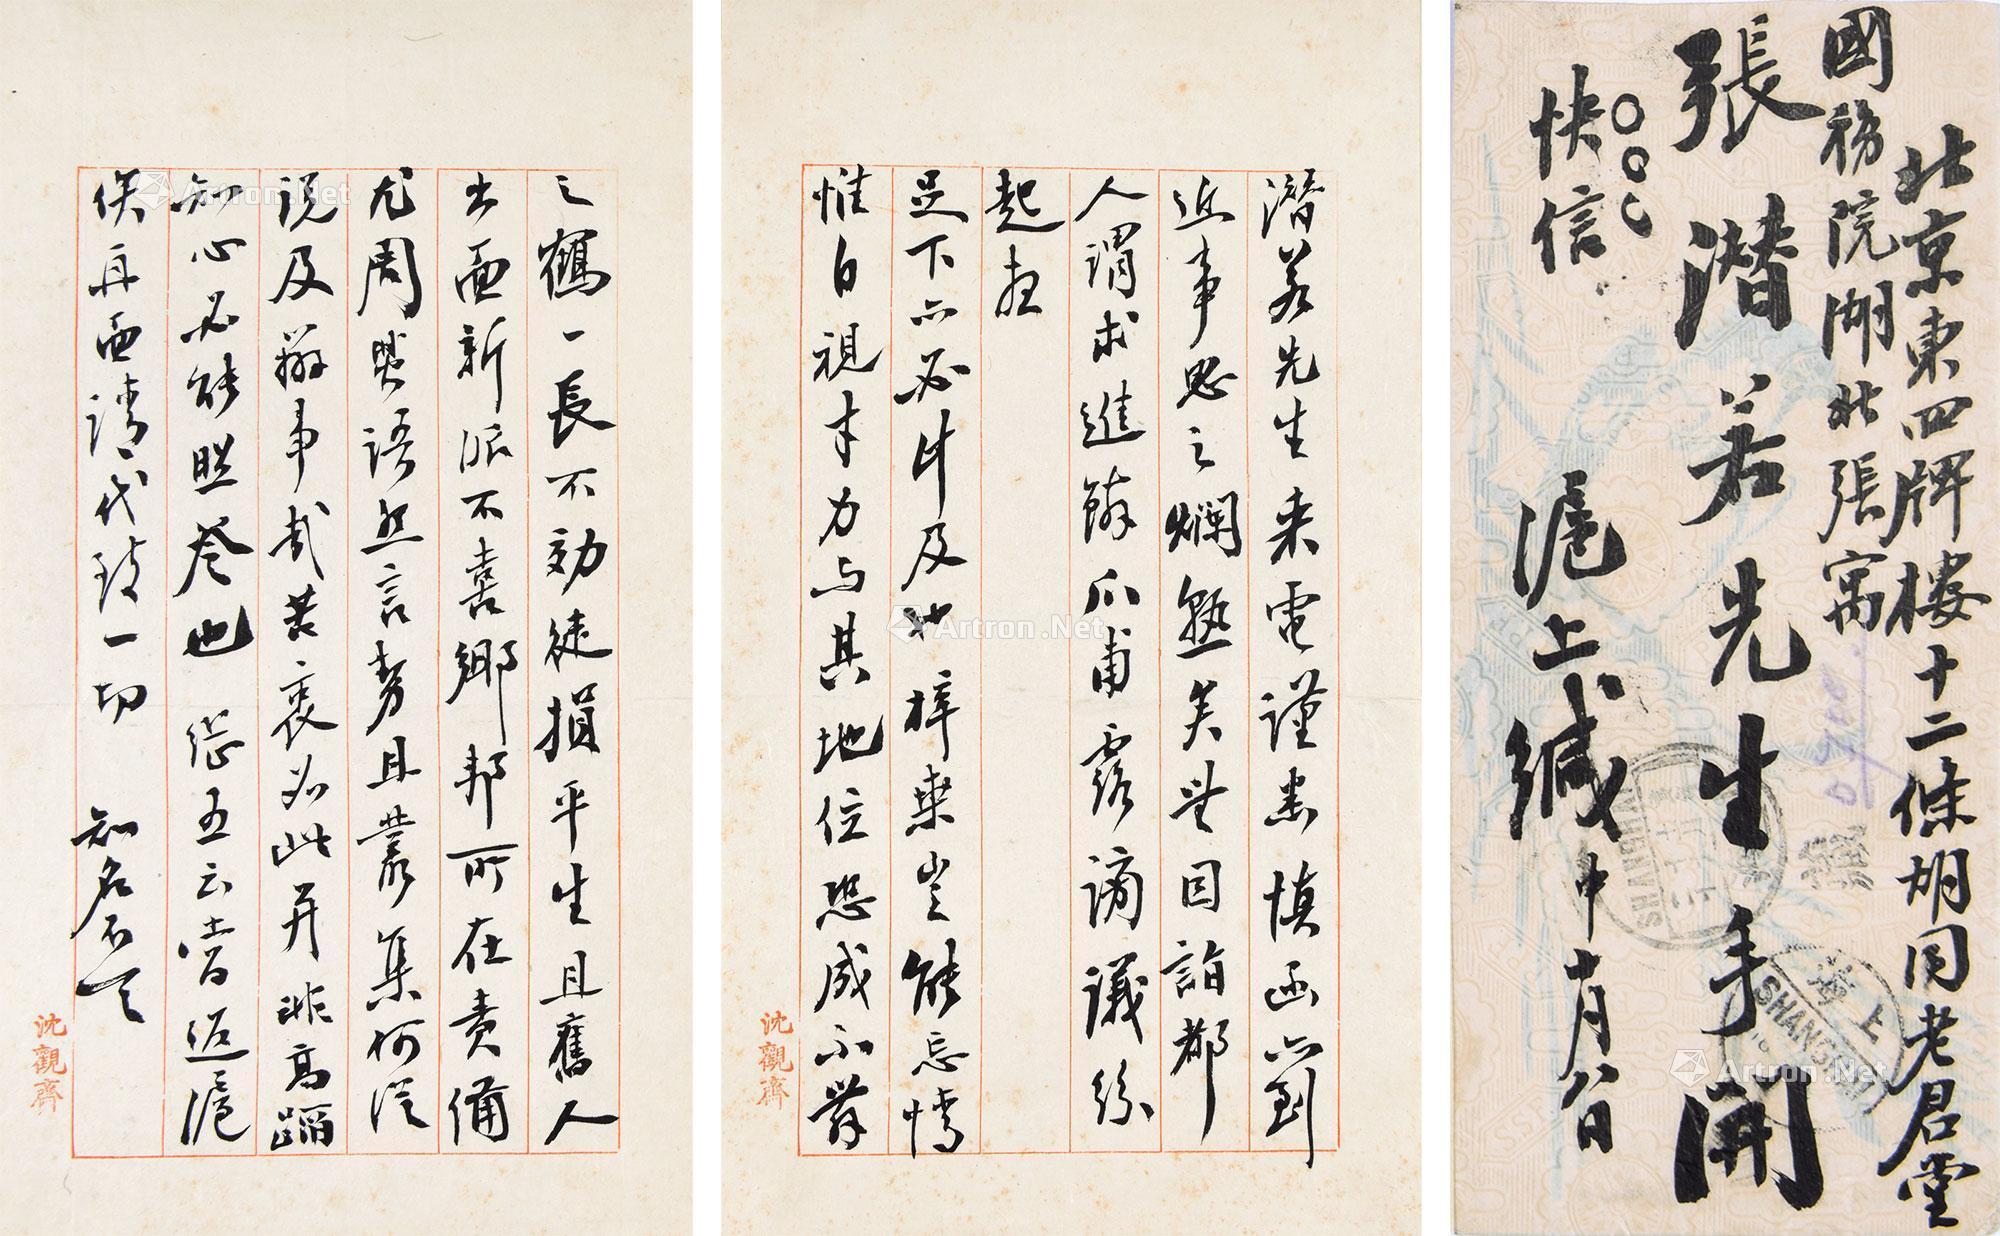 北京東四牌樓十二條胡同老君堂
國務院湖北張寓
張潛若先生手開
快信
滬上緘 中十月 日
上海
SHANGHAI
SHANGHAI
潛若先生來電謹悉慎函亦到
近事思之爛熟矣無目詣都
人謂求進餘爪甫露謗議紛
起在
足下亦必計及也梓桑豈能忘情
惟自視才力與其地位恐成不舞
沈觀齋
之鶴一長不効徒損平生且舊人
出面新派不喜鄉邦所在責備
尤周默語無言勞且叢集何從
說及辦事哉苦衷如此并非高蹈
知心必能照詧也 從五云嘗返滬
俟再面請代致一切 知名不具
沈觀齋
Artron.Net
Artron.Net
Artron.Net